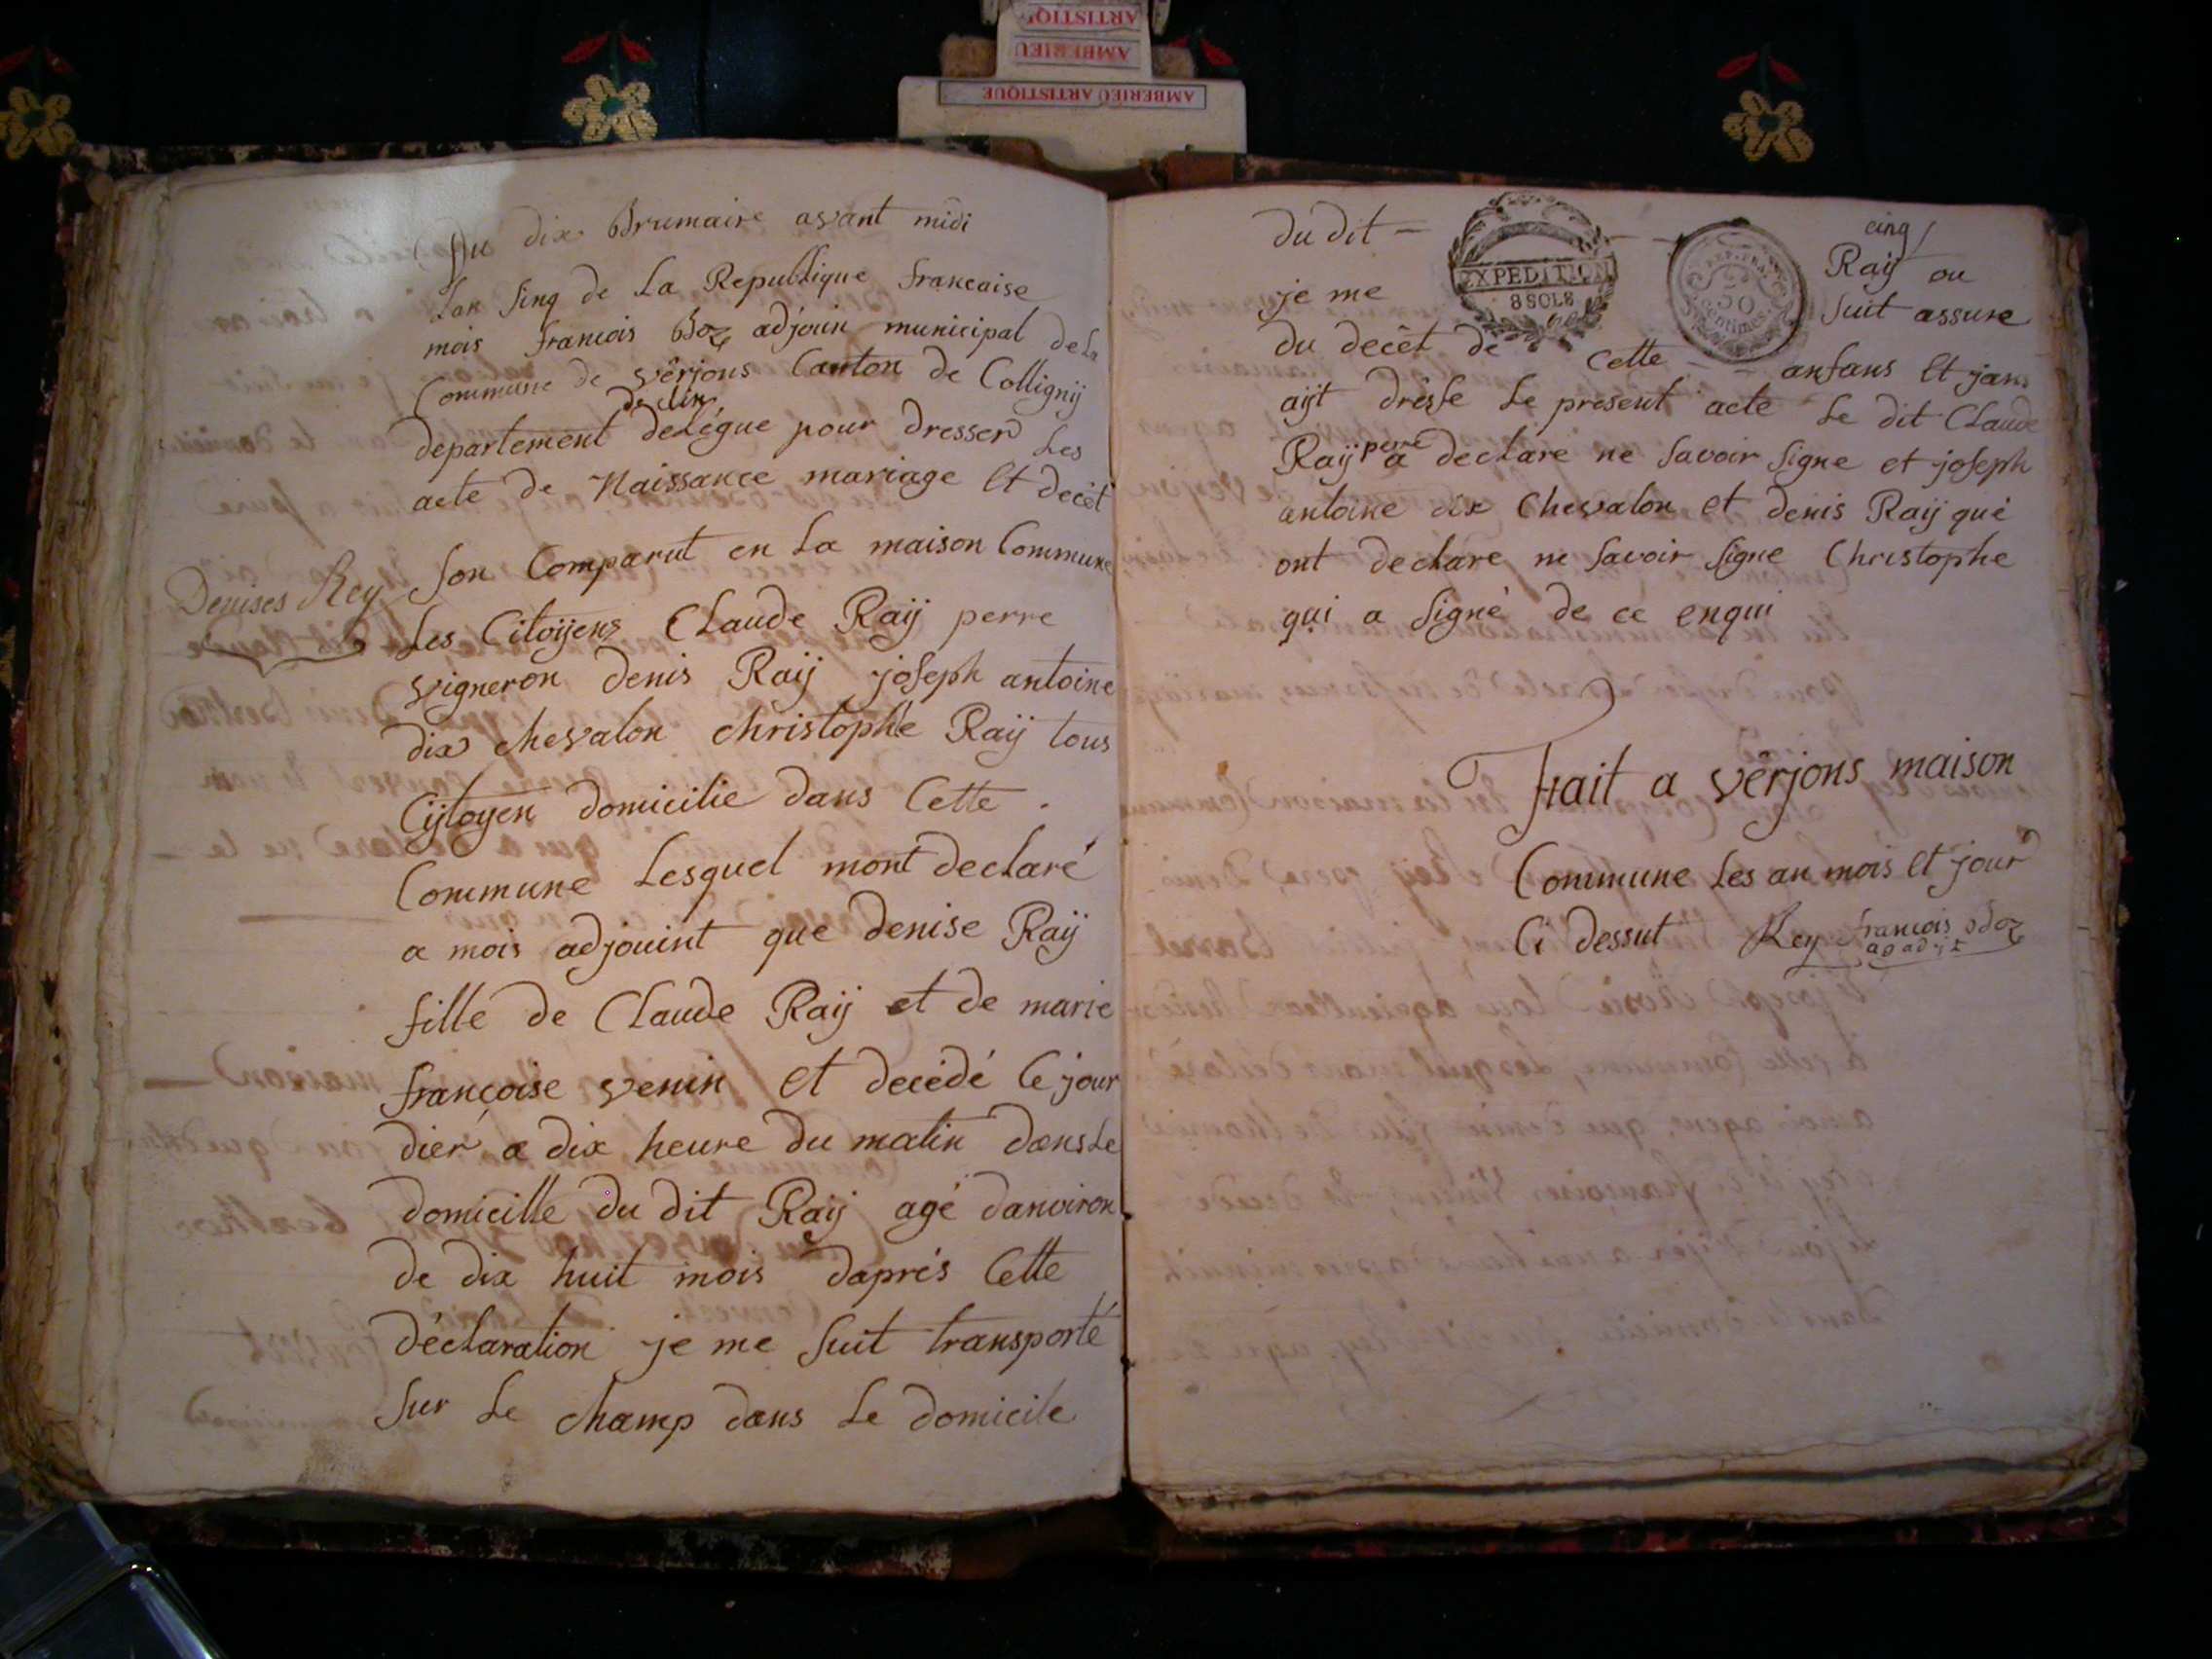 ARTISTIQUE
AMBERIEU
AMBERIEU ARTISTIQUE
Du dix Brumaire avant midi
Lan sinq de La Republique francaise
mois francois Boz adjoin municipal de La
Commune de vêrjons Canton de Collignÿ
de Lin
departement deLégue pour dresser Les
acte de Naissance mariage Et decèt
Denises Rey
son Comparut en La maison Commune
Les Citoÿens CLaude Raÿ perre
vigneron denis Raÿ joseph antoine
dix chevalon christophe Raÿ tous
Cÿtoyen domicilie dans Cette
Commune Lesquel mont declaré
a mois adjouint que denise Raÿ
fille de CLaude Raÿ et de marie
françoise venin Et decédé Ce jour
dier a dix heure du matin dans Le
domicille du dit Raÿ agé danviron
de dix huit mois daprés Cette
déclaration je me suit transporté
sur Le champ dans Le domicile
cinq
du dit Raÿ ou
EXPEDITION
8 SOLS
REP. FRA.
50
centimes
je me suit assure
du decèt de Cette anfans Et jans
aÿt drêsse Le present acte Le dit CLaude
Raÿ perre a declare ne savoir signe et joseph
antoine dix Chevalon et denis Raÿ qué
ont declare ne savoir signe Christophe
qui a signé de ce enqui
Frait a vêrjons maison
Commune Les an mois Et jour
Ci dessut Rey francois Boz